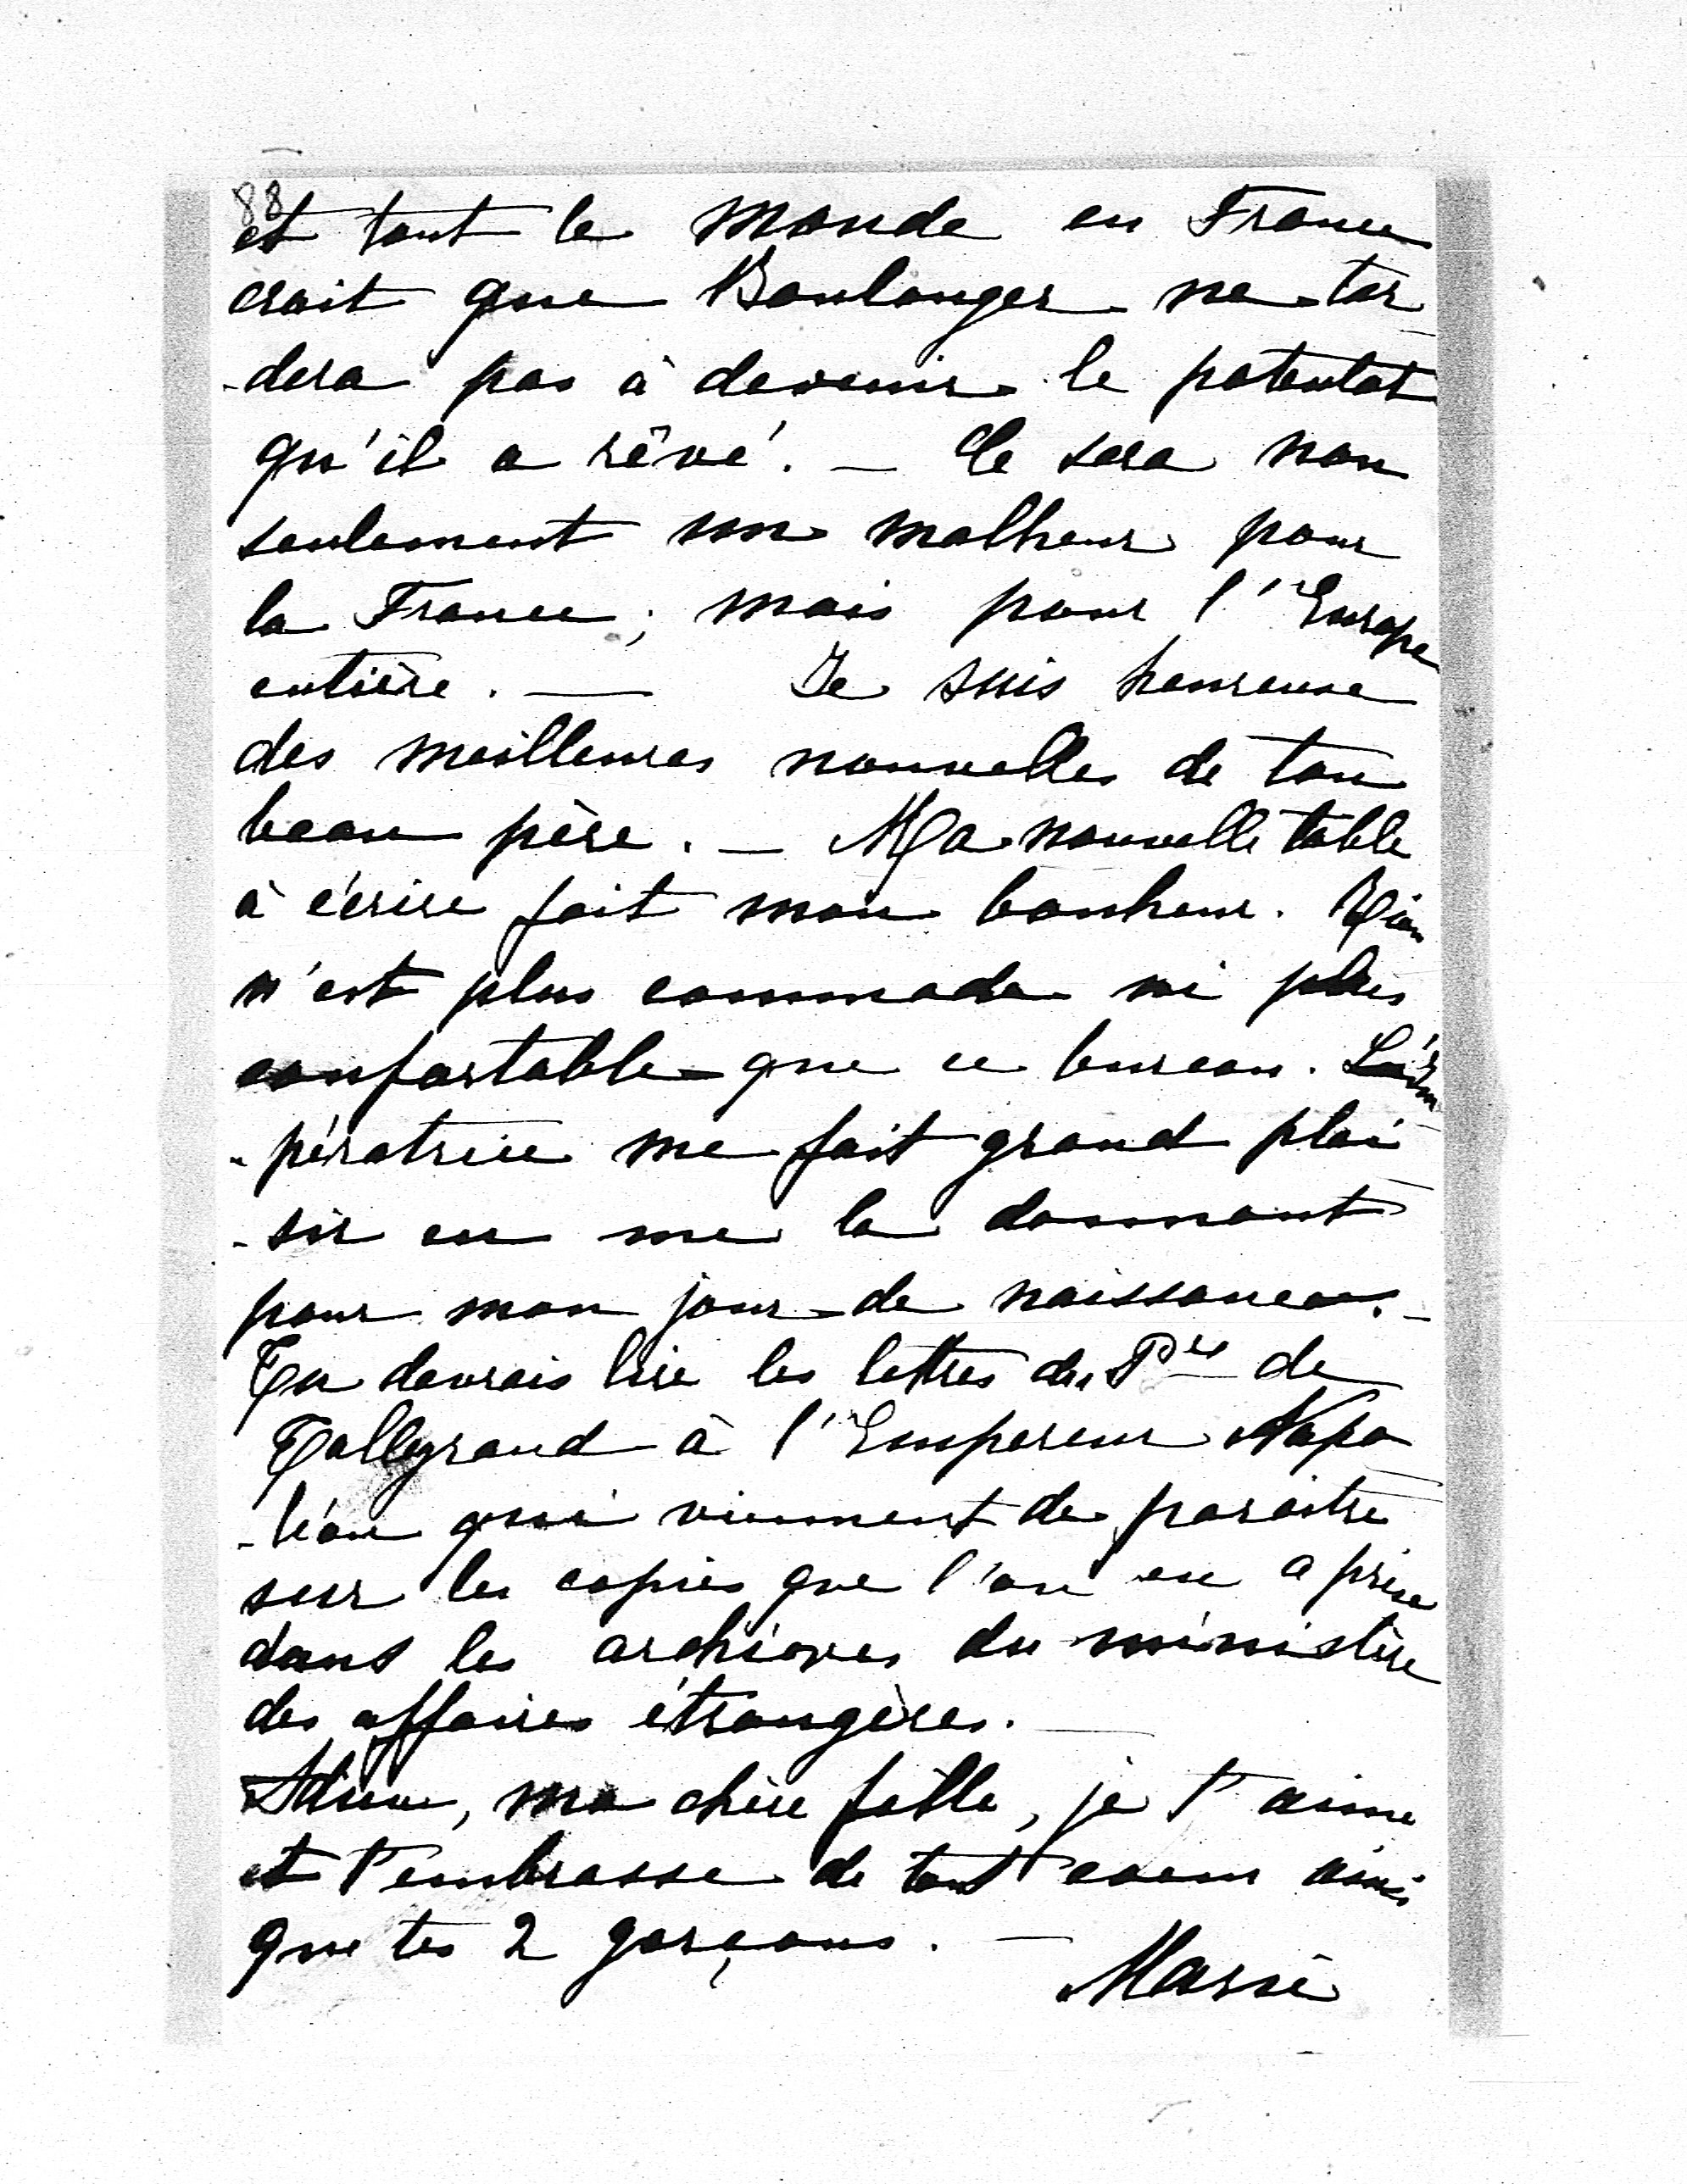 88
et tout le monde en France
croit que Boulanger ne tar-
-dera pas à devenir le potentat
qu'il a rêvé. — Ce sera non
seulement un malheur pour
la France; mais pour l'Europe
entière. — Je suis heureuse
des meilleures nouvelles de ton
beau père. — Ma nouvelle table
à écrire fait mon bonheur. Rien
n'est plus commode ni plus
confortable que ce bureau. L'Im-
-pératrice me fait grand plai-
-sir en me la donnant
pour mon jour de naissance. —
Tu devrais lire les lettres du Pce de
Talleyrand à l'Empereur Napo-
-léon qui viennent de paraître
sur les copies que l'on en a prise
dans les archives du ministère
des affaires étrangères. —
Adieu, ma chère fille, je t'aime
et t'embrasse de tout coeur ainsi
que tes 2 garçons. —